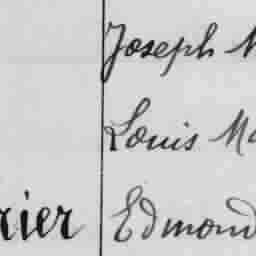 Joseph M
Louis Ma
rier Edmond